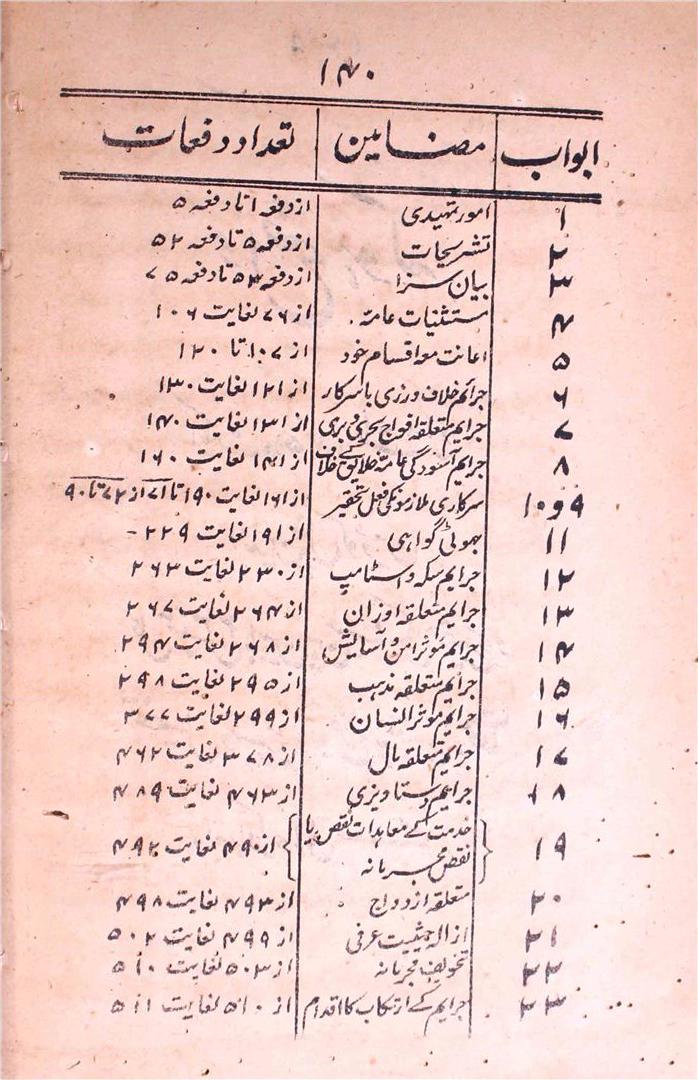 ۱۴۰
ابواب مضامین تعداد دفعات
۱ امور تمہیدی از دفعہ ۱ تا دفعہ ۵
۲ تشریحات از دفعہ ۵ تا دفعہ ۵۲
۳ بیان سزا از دفعہ ۵۳ تا دفعہ ۷۵
۴ مستثنیات عامہ۔ از ۷۶ لغایت ۱۰۶
۵ اعانت معہ اقسام خود از ۱۰۷ تا ۱۲۰
۶ جرائم خلاف ورزی با سرکار از ۱۲۱ لغایت ۱۳۰
۷ جرایم متعلقہ افواج بحری و بری از ۱۳۱ لغایت ۱۴۰
۸ جرایم آسودگی عامہ خلایق کے خلاف از ۱۴۱ لغایت ۱۶۰
۹ و ۱۰ سرکاری ملازمونکی فعل تحقیر از ۱۶۱ لغایت ۱۹۰ تا ۷۱ از ۷۲ تا ۹۰
۱۱ جھوٹی گواہی از ۱۹۱ لغایت ۲۲۹ -
۱۲ جرایم سکہ و اسٹامپ از ۲۳۰ لغایت ۲۶۳
۱۳ جرایم متعلقہ اوزان از ۲۶۴ لغایت ۲۶۷
۱۴ جرایم موثر امن و آسایش از ۲۶۸ لغایت ۲۹۴
۱۵ جرایم متعلقہ مذہب از ۲۹۵ لغایت ۲۹۸
۱۶ جرایم موثر انسان از ۲۹۹ لغایت ۳۷۷
۱۷ جرایم متعلقہ مال از ۳۷۸ لغایت ۴۶۲
۱۸ جرایم دستاویزی از ۴۶۳ لغایت ۴۸۹
۱۹ خدمت کے معاہدات نقص یا از ۴۹۰ لغایت ۴۹۲
نقص مجرمانہ
۲۰ متعلقہ ازدواج از ۴۹۳ لغایت ۴۹۸
۲۱ ازالہ حیثیت عرفی از ۴۹۹ لغایت ۵۰۲
۲۲ تخویف مجرمانہ از ۵۰۳ لغایت ۵۱۰
۲۳ جرایم کے ارتکاب کا اقدام از ۵۱۰ لغایت ۵۱۱